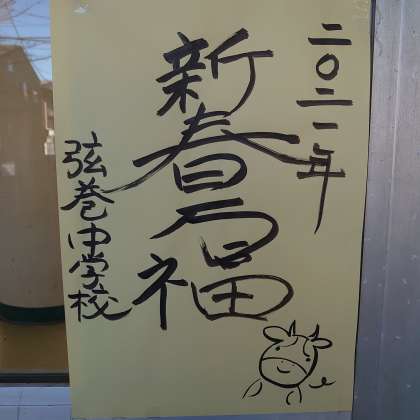 二〇二一年
新春万福
弦巻中学校